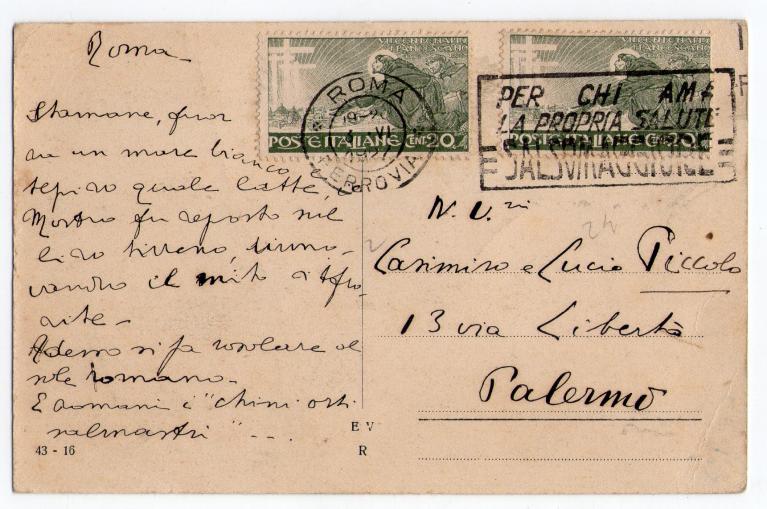 Roma
Stamane, fuor
da un mare bianco,
tepido quale latte,
Mostro fu reposto sul
lido tirreno, rinno-
vando il mito Afro-
dite.
Adesso si fa rosolare al
sole romano.
E domani i "chini orti
salmastri" ...
43 - 16
E V
R
VII CENTENARIO
FRANCESCANO
POSTE ITALIANE CENT. 20
VII CENTENARIO
FRANCESCANO
POSTE ITALIANE CENT. 20
ROMA
FERROVIA
PER CHI AMA
LA PROPRIA SALUTE
SALSOMAGGIORE
N. U.
Casimiro e Lucio Piccolo
13 via Libertà
Palermo